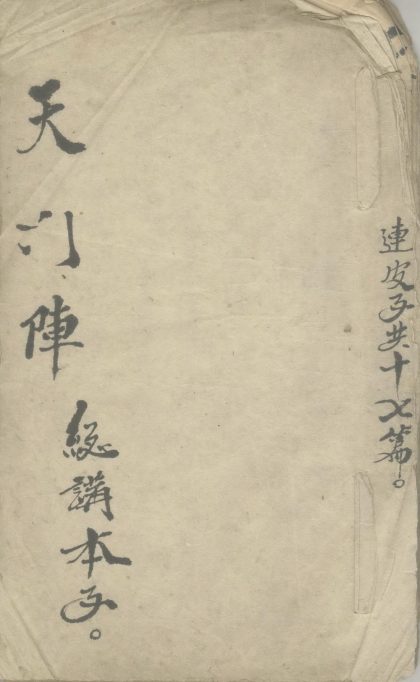 連皮子共十乂篇。
天门陣
緫講本子。